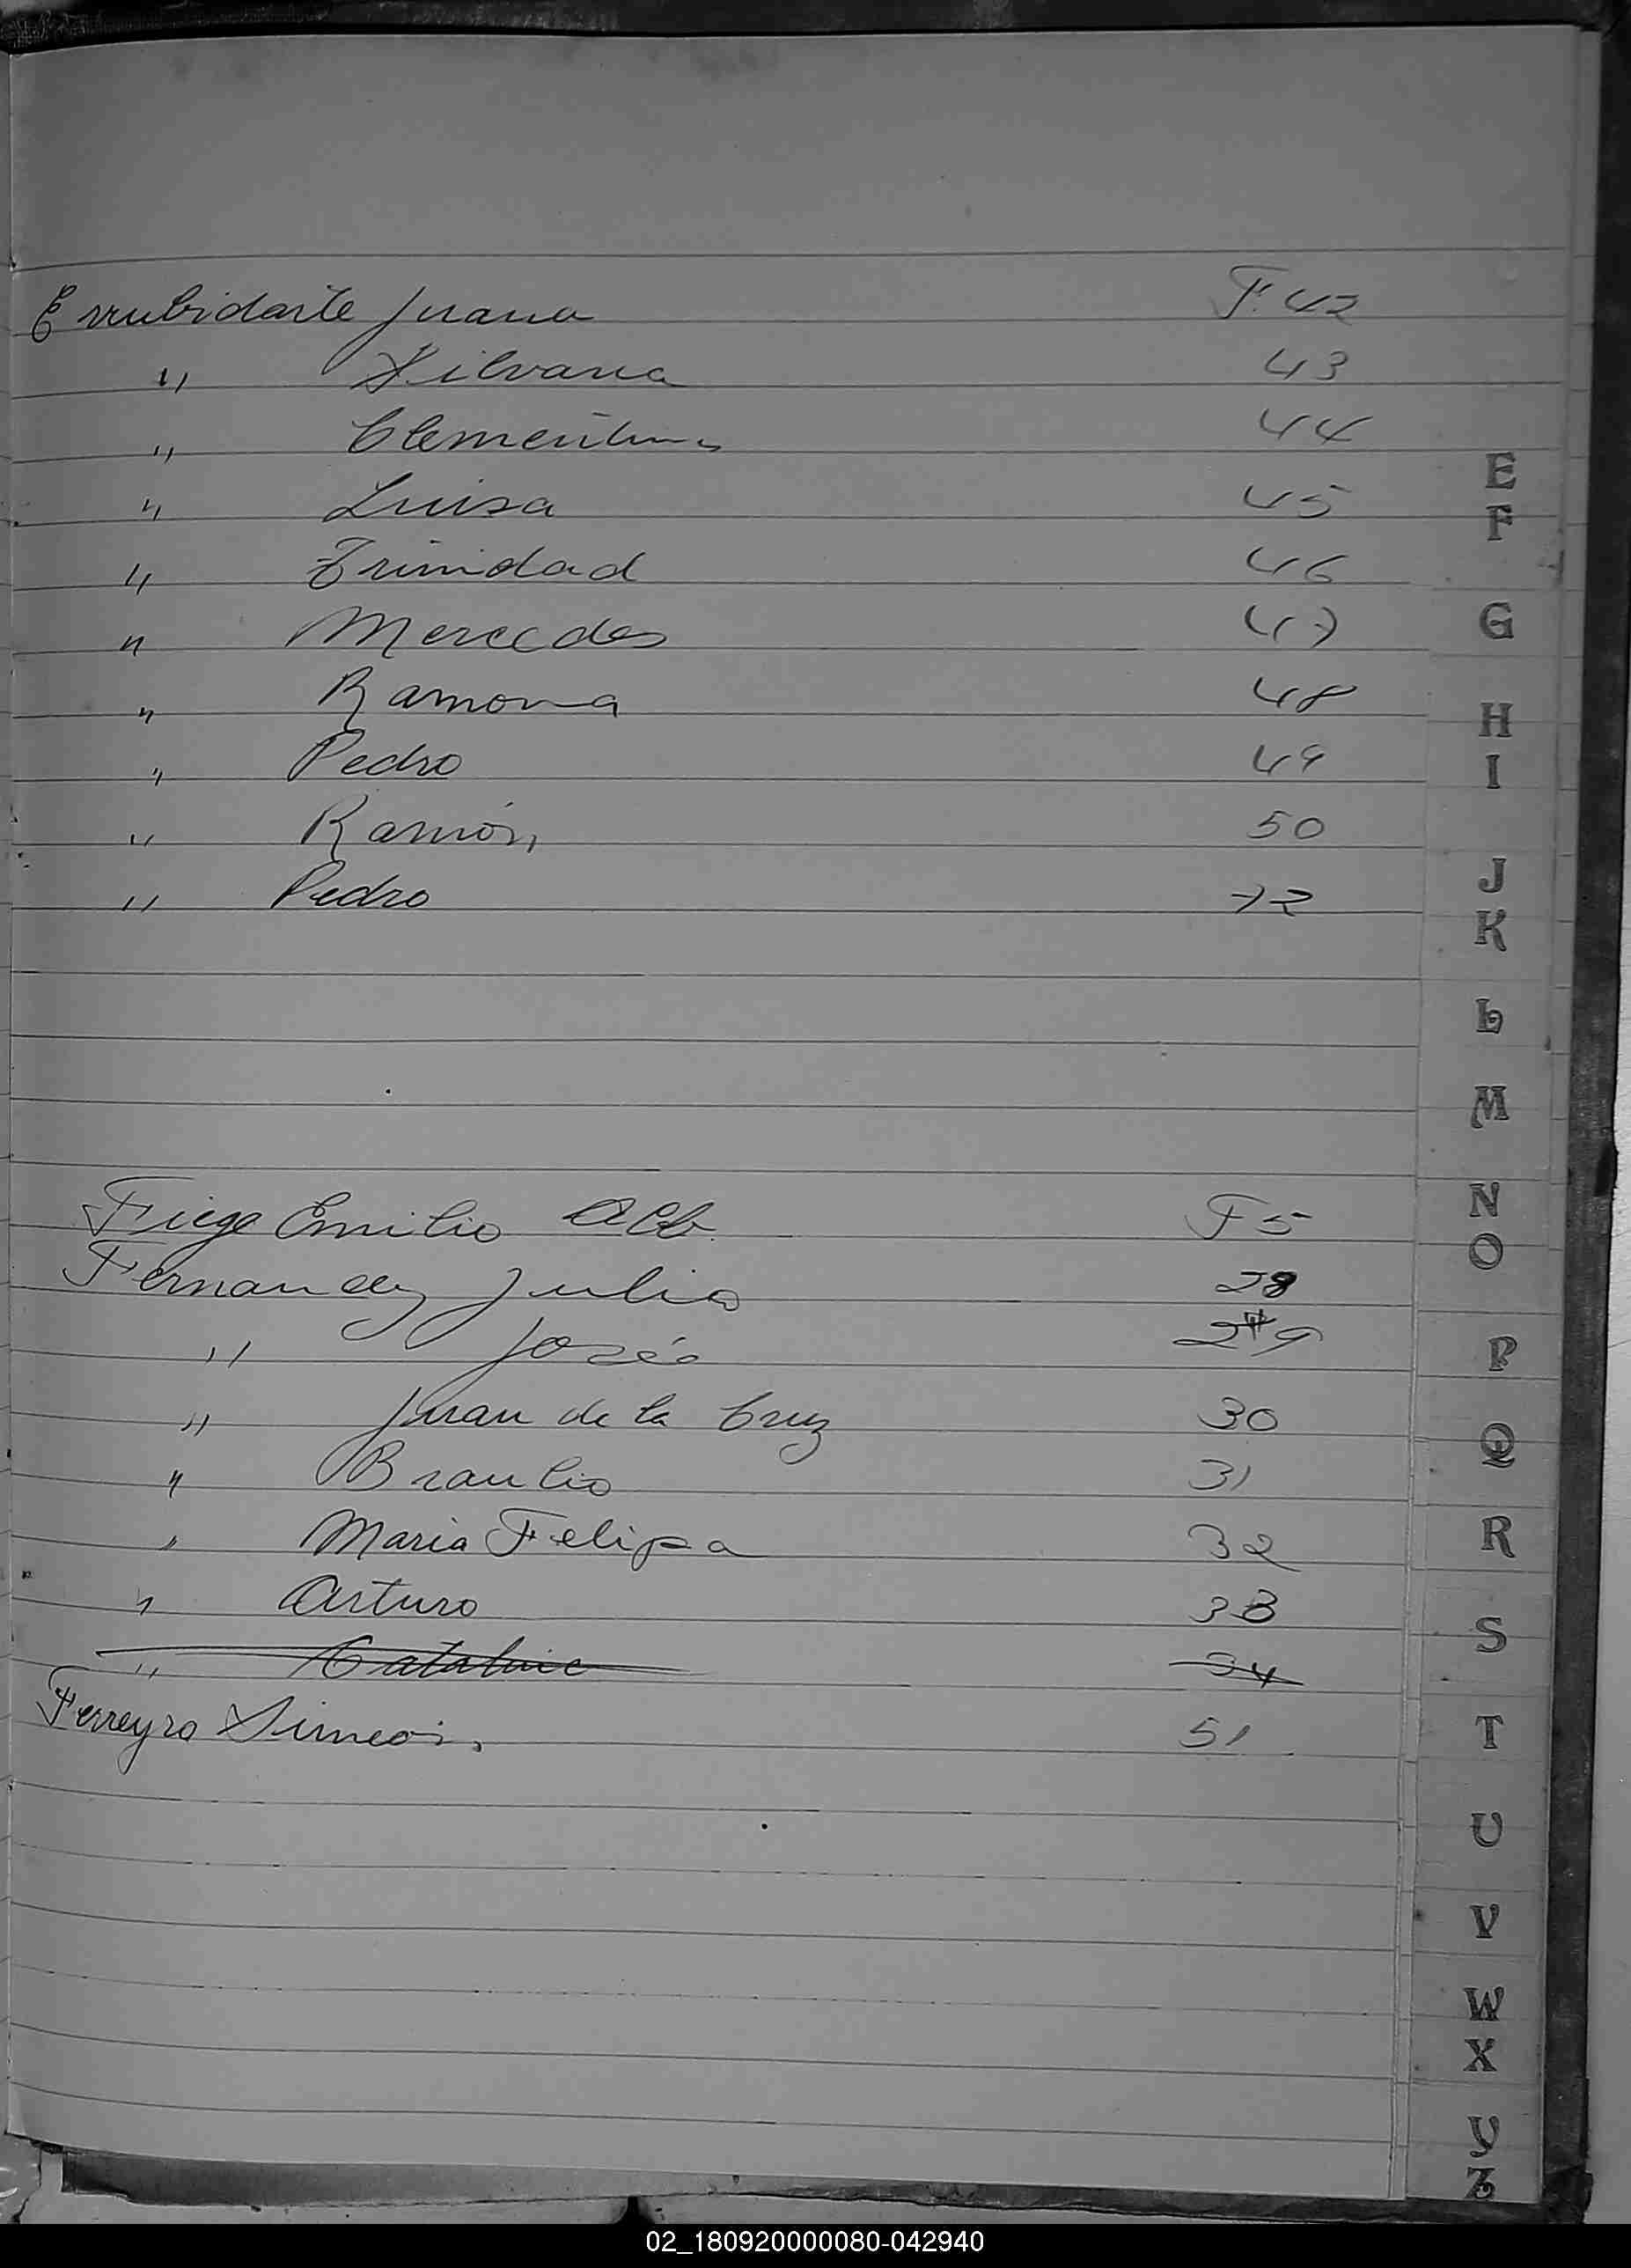 Errubidarte Juana F. 42
" Silvana 43
" Clementina 44
" Luisa 45
" Trinidad 46
" Mercedes 47
" Ramona 48
" Pedro 49
" Ramón 50
" Pedro 72
Fiege Emilio Alb. F 5
Fernandez Julio 28
" José 29
" Juan de la Cruz 30
" Braulio 31
" Maria Felipa 32
" Arturo 33
" Catalina 34
Ferreyro Simeón 51
E
F
G
H
I
J
K
L
M
N
O
P
Q
R
S
T
U
V
W
X
Y
Z
02_180920000080-042940